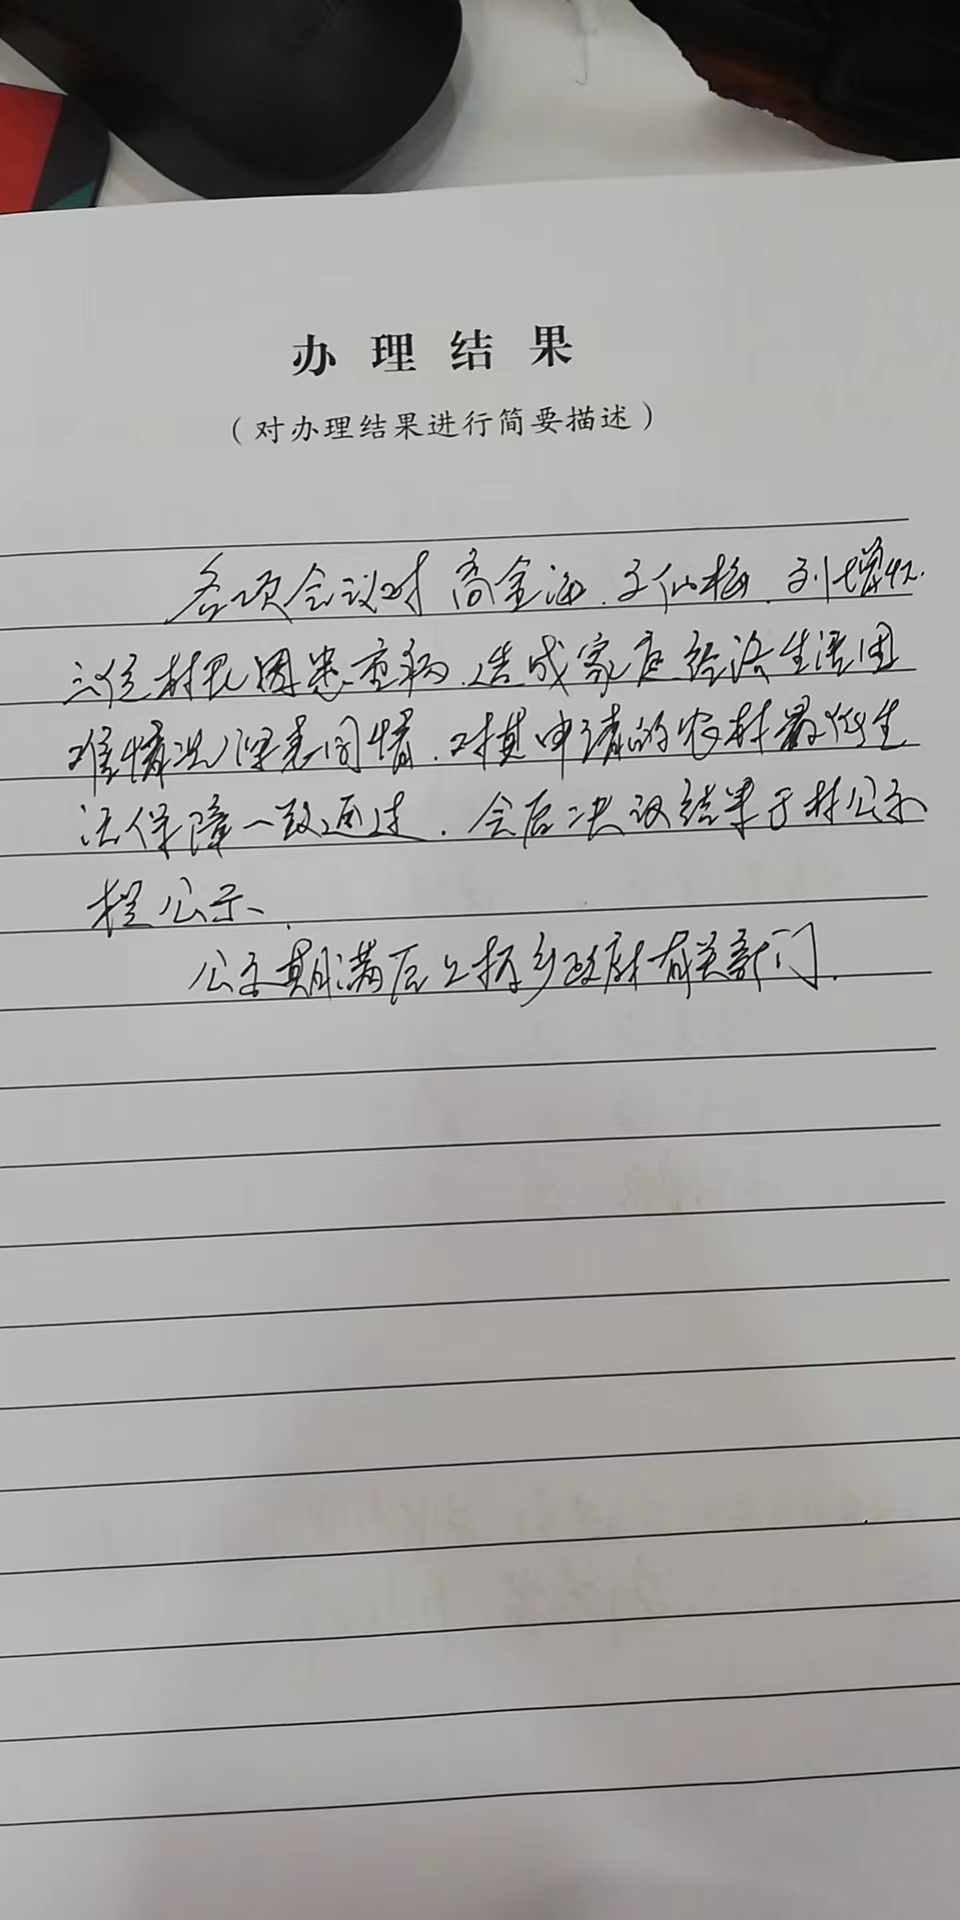 办理结果
（对办理结果进行简要描述）
各项会议对高金海、王仙梅、刘增
三位村民因患重病、造成家庭经济生活困
难情况深表同情、对其申请的农村最低生
活保障一致通过、会后决议结果于村公示
栏公示、
公示期满后上报乡政府有关部门.